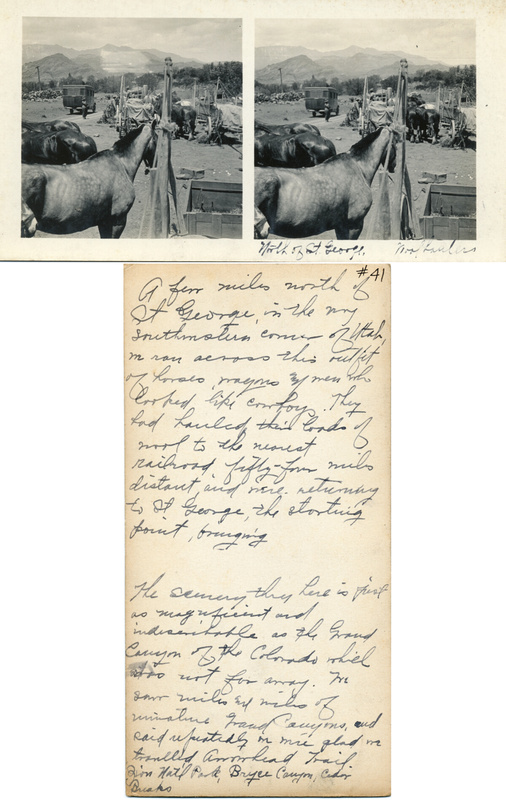 North of St. George.
Wool haulers
#41
A few miles north of
St George, in the very
Southwestern corner of Utah,
we ran across this outfit
of horses, wagons & men who
looked like cowboy. They
had hauled their loads of
wool to the nearest
railroad fifty-four miles
distant, and were returning
to St George, the starting
point, bringing
The scenery thru here is just
as magnificent and
indescribable as the Grand
Canyon of the Colorado which
was not far away. We
saw miles & miles of
miniature Grand Canyons, and
said repeatedly we were glad we
travelled Arrowhead Trail,
Zion Nat'l Park, Bryce Canyon, Cedar
Breaks